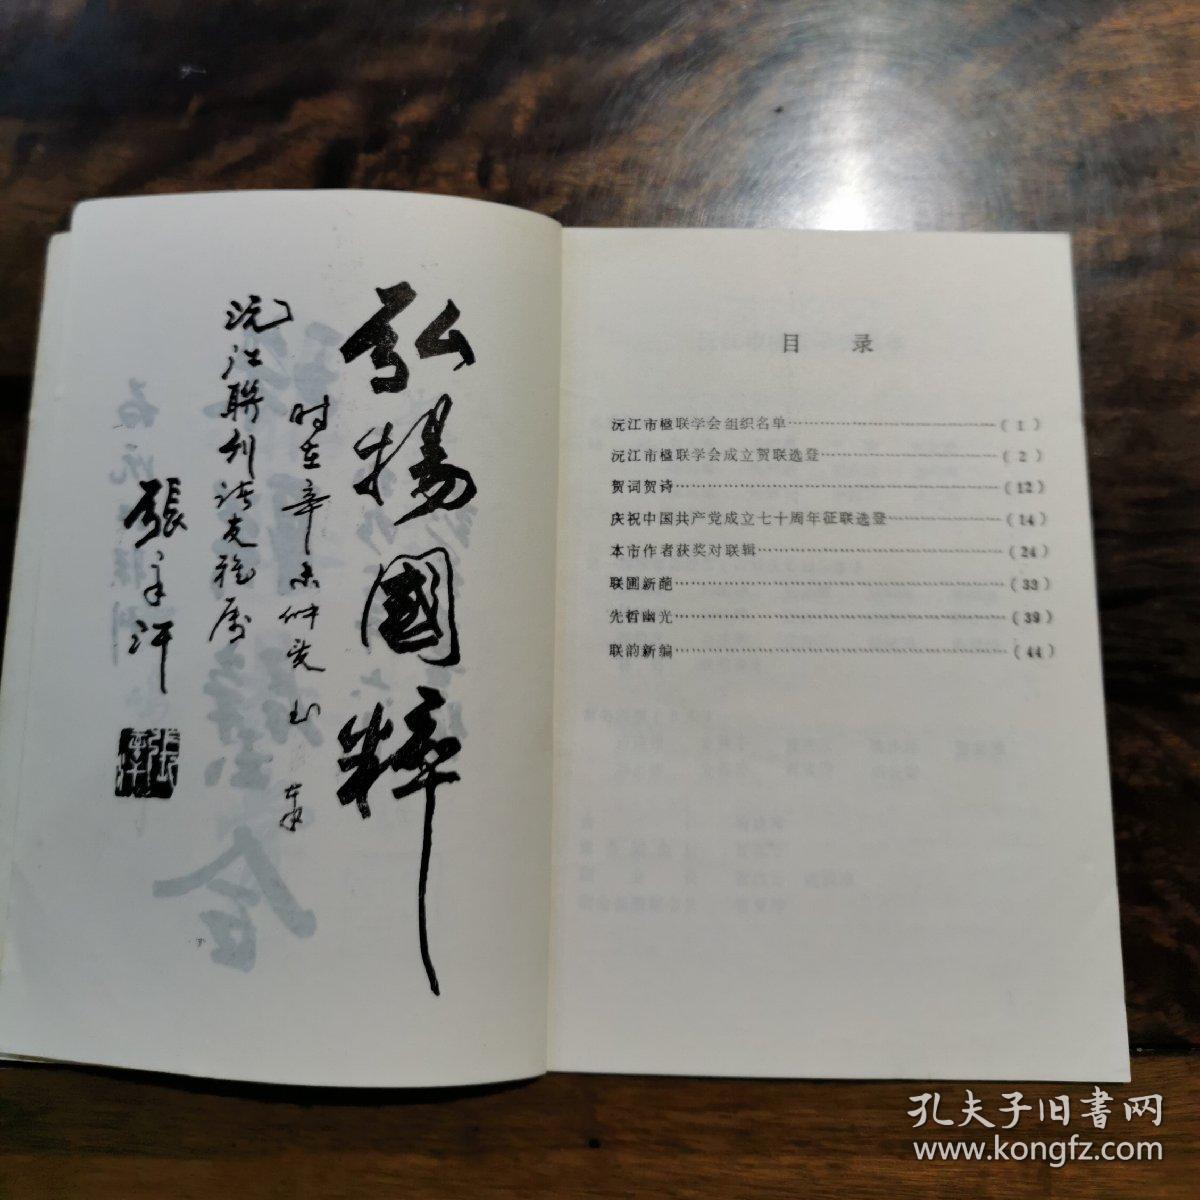 弘揚國粹
时在辛未仲
沅江聯刊诸友雅属
張
目 录
沅江市楹联学会组织名单……………………(1)
沅江市楹联学会成立贺联选登……………………(2)
贺词贺诗……………………(12)
庆祝中国共产党成立七十周年征联选登……………………(14)
本市作者获奖对联辑……………………(24)
联圃新葩……………………(33)
先哲幽光……………………(39)
联韵新编……………………(44)
孔夫子旧書网
www.kongfz.com